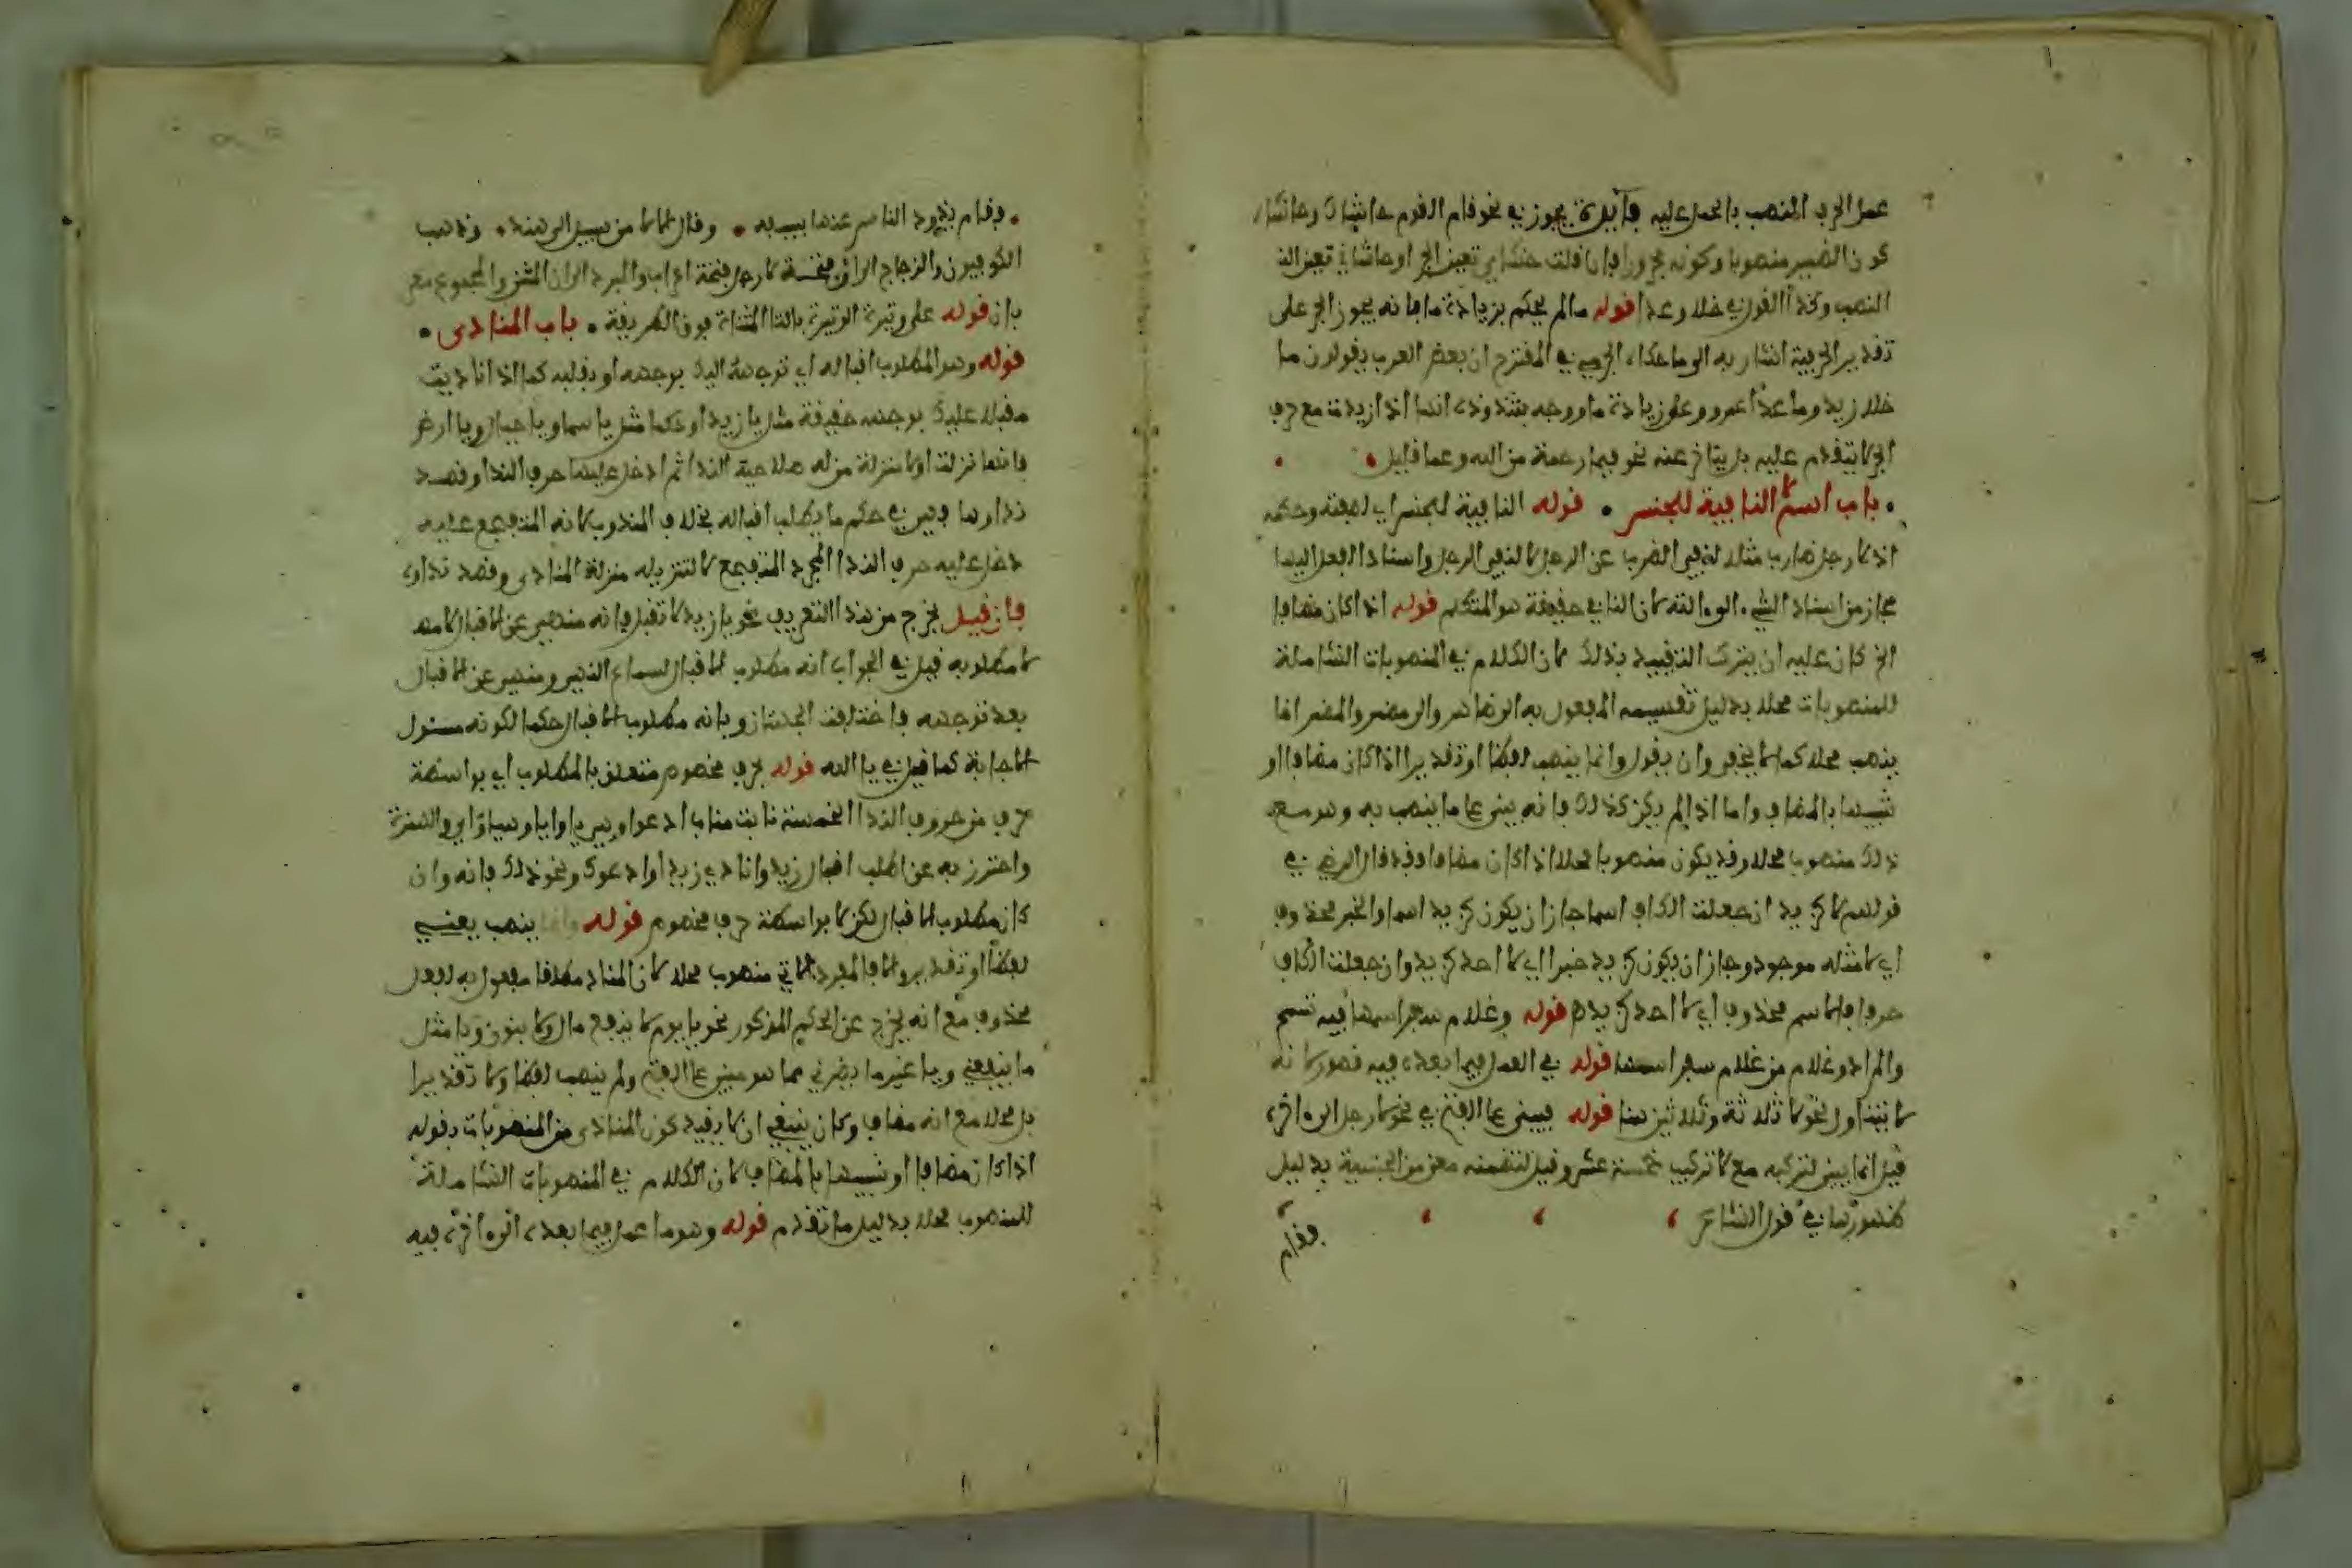 عمل الحرف المنصب بالحمل عليه فايدة يجوز في نحو قام القوم حاشاك وحاشاه
كون الضمير منصوبا وكونه مجرورا فإن قلت حاشاي تعين الجر او حاشاني تعين النـ
النصب وكذا القول في خلا وعدا قوله مالم يحكم بزيادة ما فانه يجوز الجر على
تقدير الحرفية اشار به الى ما حكاه الجرمي في المفترح ان بعض العرب يقولون ما
خلا زيد وما عدا عمرو وعلى زيادة ما ووجه بشذوذه انها اذا زيدت مع حرف
الجر لا يتقدم عليه بل يتاخر عنه نحو فبما رحمة من الله وعما قليل
باب اسم لا النافية للجنس قوله النافية للجنس اي لصفته وحكمه
اذ لا رجل ضارب مثلا لنفي الضرب عن الرجل لا لنفي الرجل واسناد الفعل اليها
مجاز من اسناد الشيء الى ءالته لان النافي حقيقة هو المتكلم قوله اذا كان مضافا
الخ كان عليه ان يترك التقييد بذلك لان الكلام في المنصوبات الشاملة
للمنصوبات محلا بدليل تقسيمه المفعول به الى ظاهر والى مضمر والمضمر انما
ينصب محلا كما لا يخفى وان يقول وانما ينصب لفظا او تقديرا اذا كان مضافا او
شبيها بالمضاف واما اذا لم يكن كذلك فانه يبنى على ما ينصب به وهو مع
ذلك منصوب محلا وقد يكون منصوبا محلا اذا كان مضافا وقد قال الرضي في
قولهم لا كزيد ان جعلت الكاف اسما جاز ان يكون كزيد اسما والخبر محذوف
اي لا مثله موجود وجاز ان يكون كزيد خبرا اي لا احد كزيد وان جعلت الكاف
حرفا فالاسم محذوف اي لا احد كزيد قوله وغلام سفر اسمها فيه تسمح
والمراد وغلام من غلام سفر اسمها قوله في العمل فيما بعده فيه قصور لانه
لا يتناول نحو لا ثلاثة وثلاثين هنا قوله فيبنى على الفتح في نحو لا رجل الى ءاخره
قيل انما بني لتركبه مع لا تركيب خمسة عشر وقيل لتضمنه معنى من الجنسية بدليل
ظهورها في قول الشاعر
فقام
فقام يذود الناس عنها بسيفه وقال الا لا من سبيل الى هند وذهب
الكوفيون والزجاج الى ان فتحة لا رجل فتحة اعراب والمبرد الى ان المثنى والمجموع معر
بان قوله على وتيرة الوتيرة بالتا المثناة فوق الطريقة باب المنادى
قوله وهو المطلوب اقباله اي توجهه اليك بوجهه او بقلبه كما اذا ناديت
مقبلا عليك بوجهه حقيقة مثل يا زيد او حكما مثل يا سما ويا جبال ويا ارض
فانها نزلت اولا منزلة من له صلاحية الندا ثم ادخل عليها حرف الندا وقصد
نداوها فهي في حكم ما يطلب اقباله بخلاف المندوب لانه المتفجع عليه
دخل عليه حرف الندا لمجرد التفجع لا لتنزيله منزلة المنادى وقصد نداوه
فان قيل يخرج من هذا التعريف نحو يا زيد لا تقبل فانه منهي عن الاقبال لا مطـ
لا مطلوبه قيل في الجواب انه مطلوب الاقبال لسماع النهي ومنهي عن الاقبال
بعد توجهه فاختلفت الجهتان وبانه مطلوب الاقبال حكما لكونه مسئول
الاجابة كما قيل في يا الله قوله بحرف مخصوص متعلق بالمطلوب اي بواسطة
حرف من حروف الندا الخمسة نابت مناب ادعوا وهي يا وايا وهيا واي والهمزة
واحترز به عن اطلب اقبال زيد وانادي زيدا وادعوك ونحو ذلك فانه وان
كان مطلوب الاقبال لكن لا بواسطة حرف مخصوص قوله وانما ينصب يعني
لفظا او تقديرا والا فالمفرد الاتي منصوب محلا لان المناد مطلقا مفعول به لفعل
محذوف مع انه يخرج عن الحكم المذكور نحو يا يوم لا ينفع مال ولا بنون ويا مثل
ما ينفعني ويا غير ما يضرني مما هو مبني على الفتح ولم ينصب لفظا ولا تقديرا
بل محلا مع انه مضاف وكان ينبغي ان لا يقيد كون المنادى من المنصوبات بقوله
اذا كان مضافا او شبيها بالمضاف لان الكلام في المنصوبات الشاملة
للمنصوب محلا بدليل ما تقدم قوله وهو ما عمل فيما بعده الى ءاخره فيه